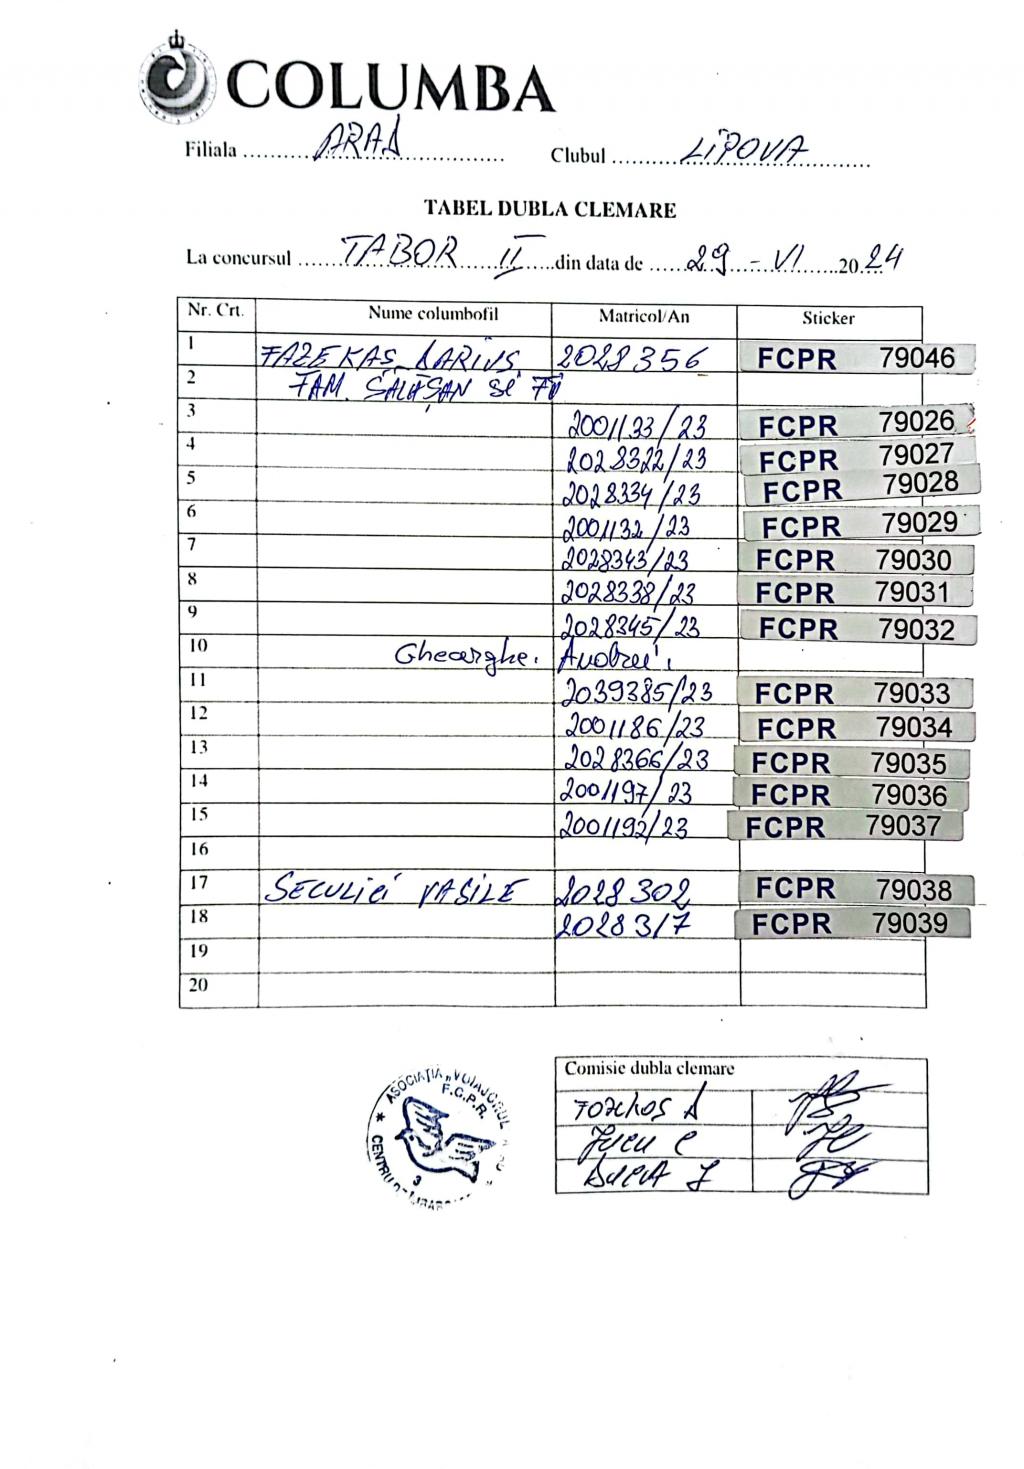 COLUMBA
Filiala ARAD Clubul LIPOVA
TABEL DUBLA CLEMARE
La concursul TABOR II din data de 29-VI 2024
Nr. Crt. Nume columbofil Matricol/An Sticker
1 FAZEKAS DARIUS 2028356 FCPR 79046
2 FAM. SĂLĂȘAN SI FII
3 2001133/23 FCPR 79026
4 2028322/23 FCPR 79027
5 2028334/23 FCPR 79028
6 2001132/23 FCPR 79029
7 2028343/23 FCPR 79030
8 2028338/23 FCPR 79031
9 2028345/23 FCPR 79032
10 Gheorghe. Andrei.
11 2039385/23 FCPR 79033
12 2001186/23 FCPR 79034
13 2028366/23 FCPR 79035
14 2001197/23 FCPR 79036
15 2001192/23 FCPR 79037
16
17 SECULICI VASILE 2028302 FCPR 79038
18 2028317 FCPR 79039
19
20
Comisie dubla clemare
ASOCIAȚIA „VOIAJORUL
F.C.P.R.
3